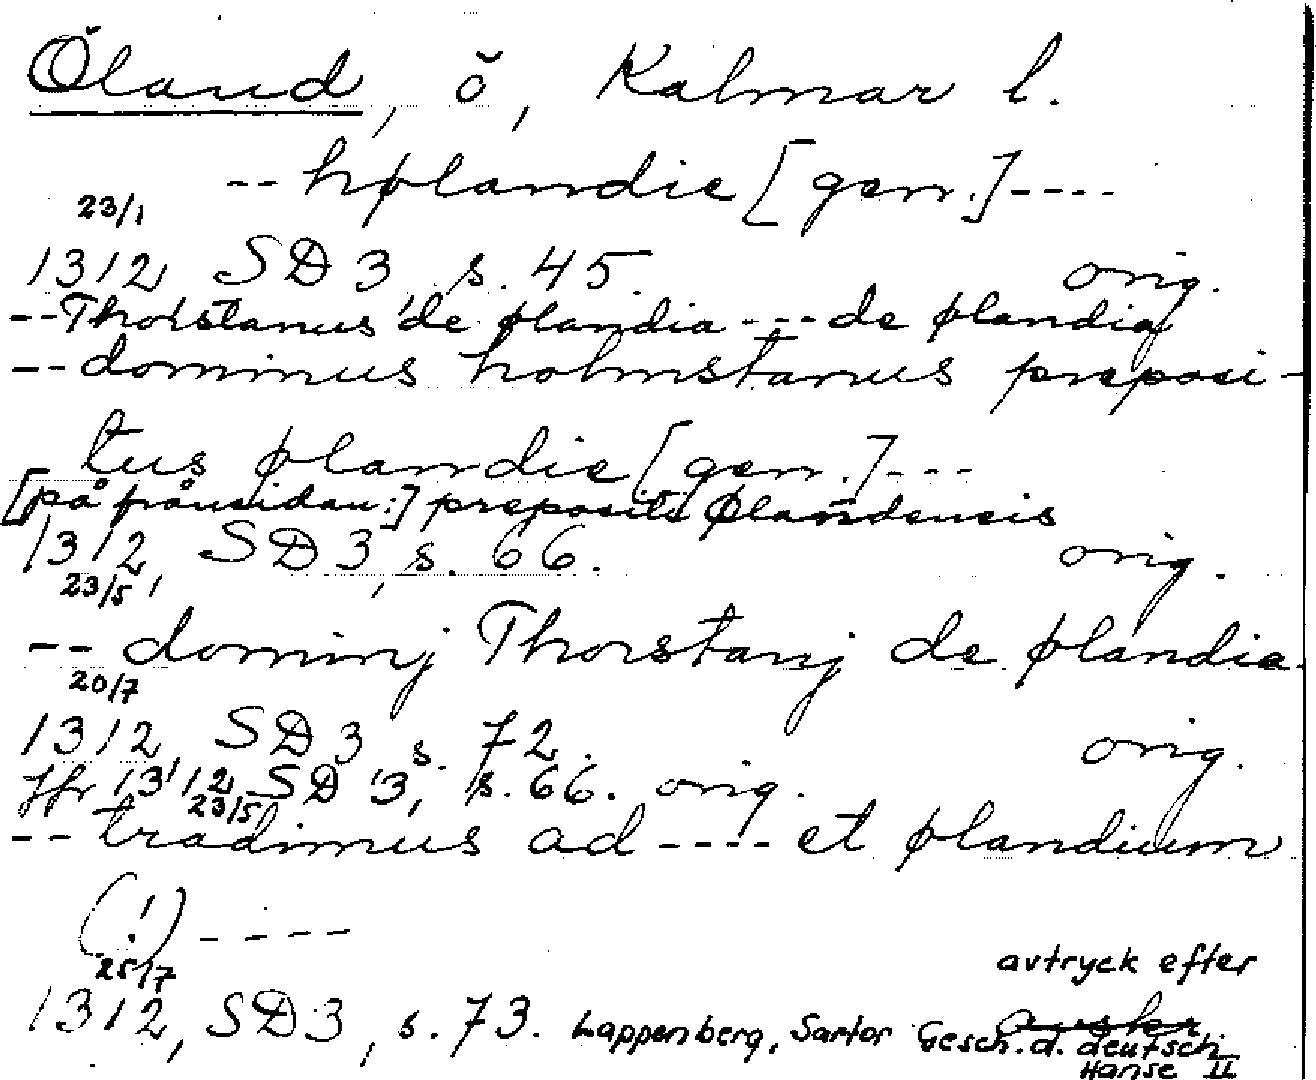 Öland, ö, Kalmar l.
-- hølandie [gen.] ----
23/1
1312 SD 3 s. 45. orig.
-- Thorstanus de ølandia --- de ølandia
-- dominus holmstanus preposi-
tus ølandie [gen.] ---
[på frånsidan:] preposito ølandensis
1312, SD 3, s. 66. orig.
23/5
-- dominj Thorstanj de ølandia
20/7
1312, SD 3 s. 72. orig.
Jfr 1312 SD 3, s. 66. orig.
23/5
-- tradimus ad ---- et ølandium
(!) ----
25/7 avtryck efter
1312, SD 3, s. 73. Lappenberg, Sartor Gesch. d. deutsch
Hanse II